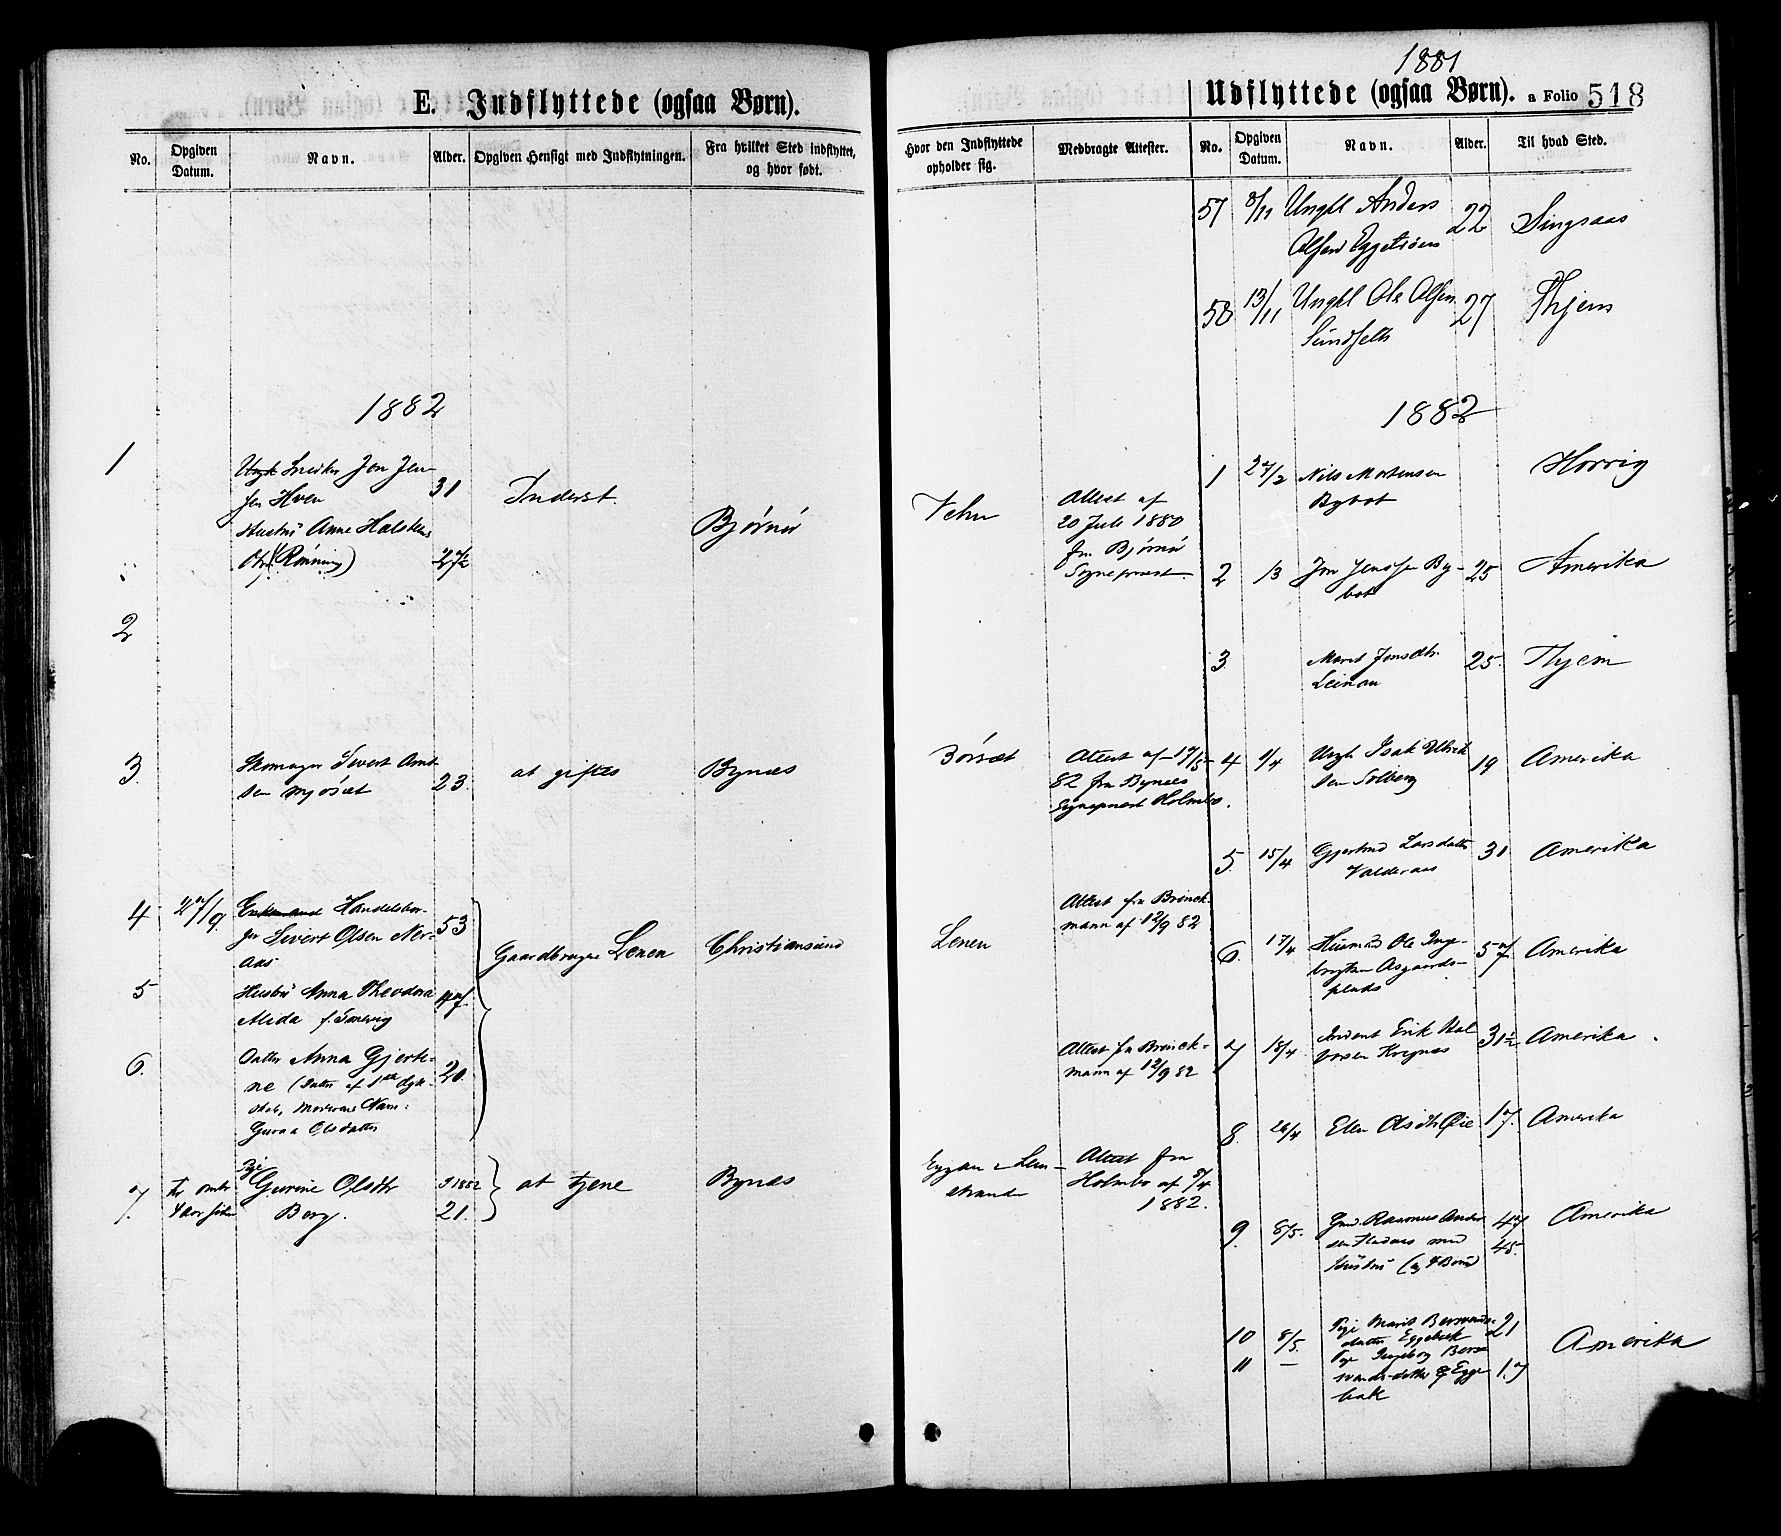 E. Indflyttede (ogsaa Børn).
No.
Opgiven Datum.
Navn.
Alder.
Opgiven Hensigt med Indflytningen.
Fra hvilket Sted indflyttet, og hvor født.
1882
1
Snedker Jon Jen-
sen Hven
31
Inderst.
Bjørnør
Hustru Anne Halstens
(Rønning)
2
3.
Skomager Sivert Arnt
sen Mjøsæt
23.
at giftes
Bynæs
4
27/9
Enkemand Handelsbor-
ger Sivert Olsen Ner-
aas
53
Gaardbruger Lenen
Christiansund
5
Hustru Anna Theodora
Alida f.
47
6.
Datter Anna Gjert-
ne (Datter af 1ste Ægte-
skab, Moderens Navn:
Guraa Olsdatter
20.
7.
Pige
Gurine Olsdtr
Berg.
21.
at tjene
Bynæs
1881
Udflyttede (ogsaa Børn).
a Folio 518
Hvor den Indflyttede opholder sig.
Medbragte Attester.
No.
Opgiven Datum.
Navn.
Alder.
Til hvad Sted.
57
8/11
Ungkl Anders
Olsen Eggetrøen
22
Singsaas
58
13/11
Ungkl Ole Olsen
Sundset
27
Thjem
1882
Vehn
Attest af
20 Juli 1880
fra Bjørnør
Sognepræst.
1
27/2
Nils Mortensen
Bybot
Horrig
2
13
Jon Jensen By-
bot
25
Amerika
3
Marit Jonsdtr.
Leinan
25.
Thjem
Børsæt
Attest af 19/5
82 fra Bynæs
Sognepræst Holmbo.
4
1/4
Ungk Isak Ulrik
sen Solberg
19
Amerika
5.
15/4
Gjertrud Larsdatter
Valderaas
31
Amerika
Lenen
Attest fra Brinck-
mann af 12/9 82
6.
17/4
Husmand Ole Inge-
brigtsen Aasgaards-
plads
57
Amerika
Attest fra Brinck-
mann af 12/9 82
7
18/4
Inderst Erik Hal
vorsen Krognes
31½
Amerika.
8.
24/4
Elen Olsdtr Øie
17.
Amerika
Eggan i Lein-
stranden
Attest fra
Holmbo af 8/4
1882.
9.
8/5.
Gmd. Rasmus Ander
sen Hadaas med
Hustru (og 4 Børn
47
45.
Amerika
10
8/5.
Pige Marit Bersvends-
datter Eggebak
21
Amerika
11
—
Pige Ingeborg Bers
vendsdatter Egge
bak
17